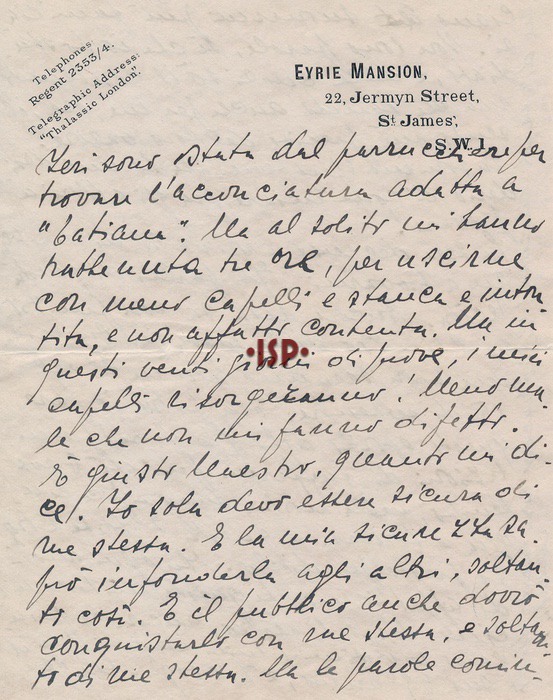 Telephones:
Regent 2353/4.
Telegraphic Address:
"Thalassic London".
EYRIE MANSION,
22, Jermyn Street,
St James',
S.W.1.
Ieri sono stata dal parrucchiere per
trovare l'acconciatura adatta a
"Catiana". Ma al solito mi hanno
trattenuta tre ore, per uscirne
con meno capelli e stanca e inton
tita, e non affatto contenta. Ma in
questi venti giorni di prove, i miei
capelli risorgeranno! Meno ma
le che non mi fanno difetto.
È giusto Maestro, quanto mi di-
ce. Io sola devo essere sicura di
me stessa. E la mia sicurezza sa
prò infonderla agli altri, soltan
to così. E il pubblico anche dovrò
conquistarlo con me stessa, e soltan
to di me stessa. Ma le parole comin-
•ISP•